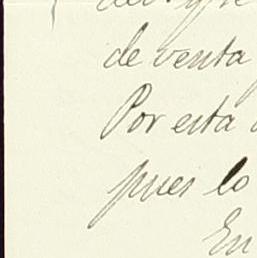 de venta
Por esta
pues lo
En